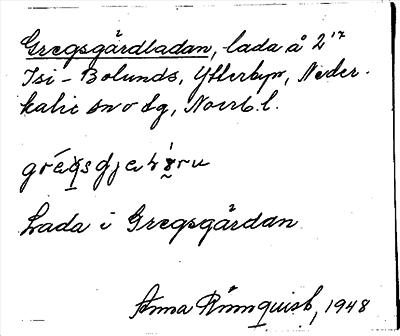 Gregsgårdladan, lada å 2¹⁷
Isi-Bolunds, Ytterbyn, Neder-
kalix sn o dg, Norrb.l.
Lada i Gregsgårdan
Anna Rönnquist, 1948